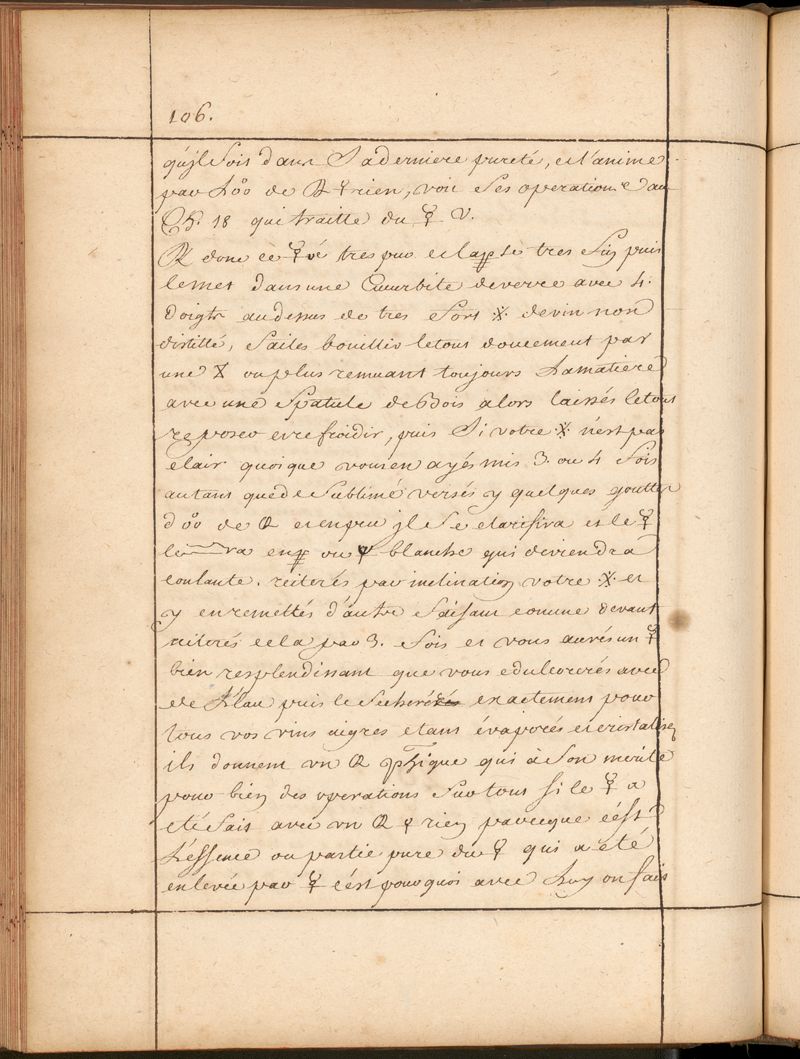 106.
qu'jl soit dans sa derniere pureté, et l'anime
par de ☿rien, voie ses operations dans
Ch. 18 qui traitte du ☿ V.
donc ce ☿ tres pur et tres fin puis
le met dans une Cucurbite de verre avec 4.
doigts au dessus de tres fort de vin non
distillé, faites bouillir le tout doucement par
une ou plus remuant toujours la matiere
avec une spatule de bois alors laissés le tout
reposer et refroidir, puis si votre n'est pas
clair quoique vous en ayés mis 3. ou 4 fois
autant que de sublimé versés y quelques gouttes
de et en peu jl se clarifira et le ☿
en ou blanche qui deviendra
coulante. reiterés par inclination votre et
y en remettés d'autre faisant comme devant
reiterés cela par 3. fois et vous aurés un ☿
bien resplendissant que vous edulcorérés avec
de l'eau puis le secherés exactement pour
tous vos vins aigres etant évaporés et cristalisez
ils donnent un qui à son merite
pour bien des operations surtout si le ☿ a
eté fait avec un ♀rien parceque c'est
l'essence ou partie pure du ♀ qui a été
enlevée par ☿ c'est pourquoi avec luy on fait